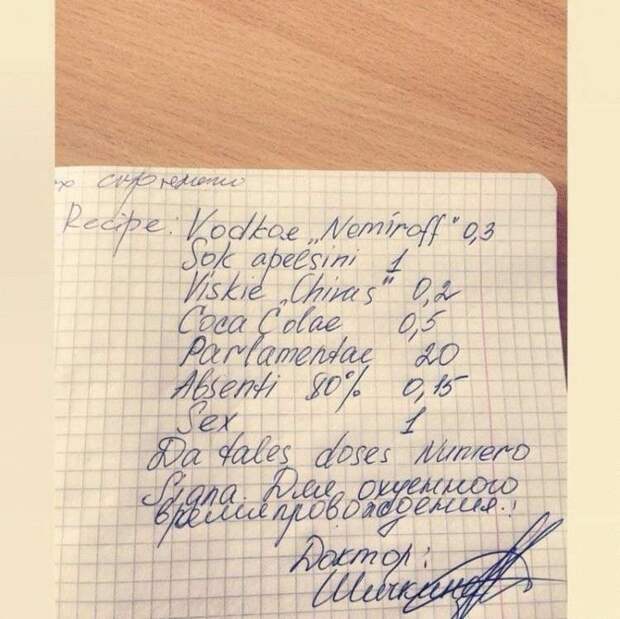 Recipe: Vodkae „Nemiroff" 0,3
Sok apelsini 1
Viskie „Chivas" 0,2
Coca Colae 0,5
Parlamentae 20
Absenti 80% 0,15
Sex 1
Da tales doses Numero
Signa. Для охуенного
времяпровождения.:
Доктор: